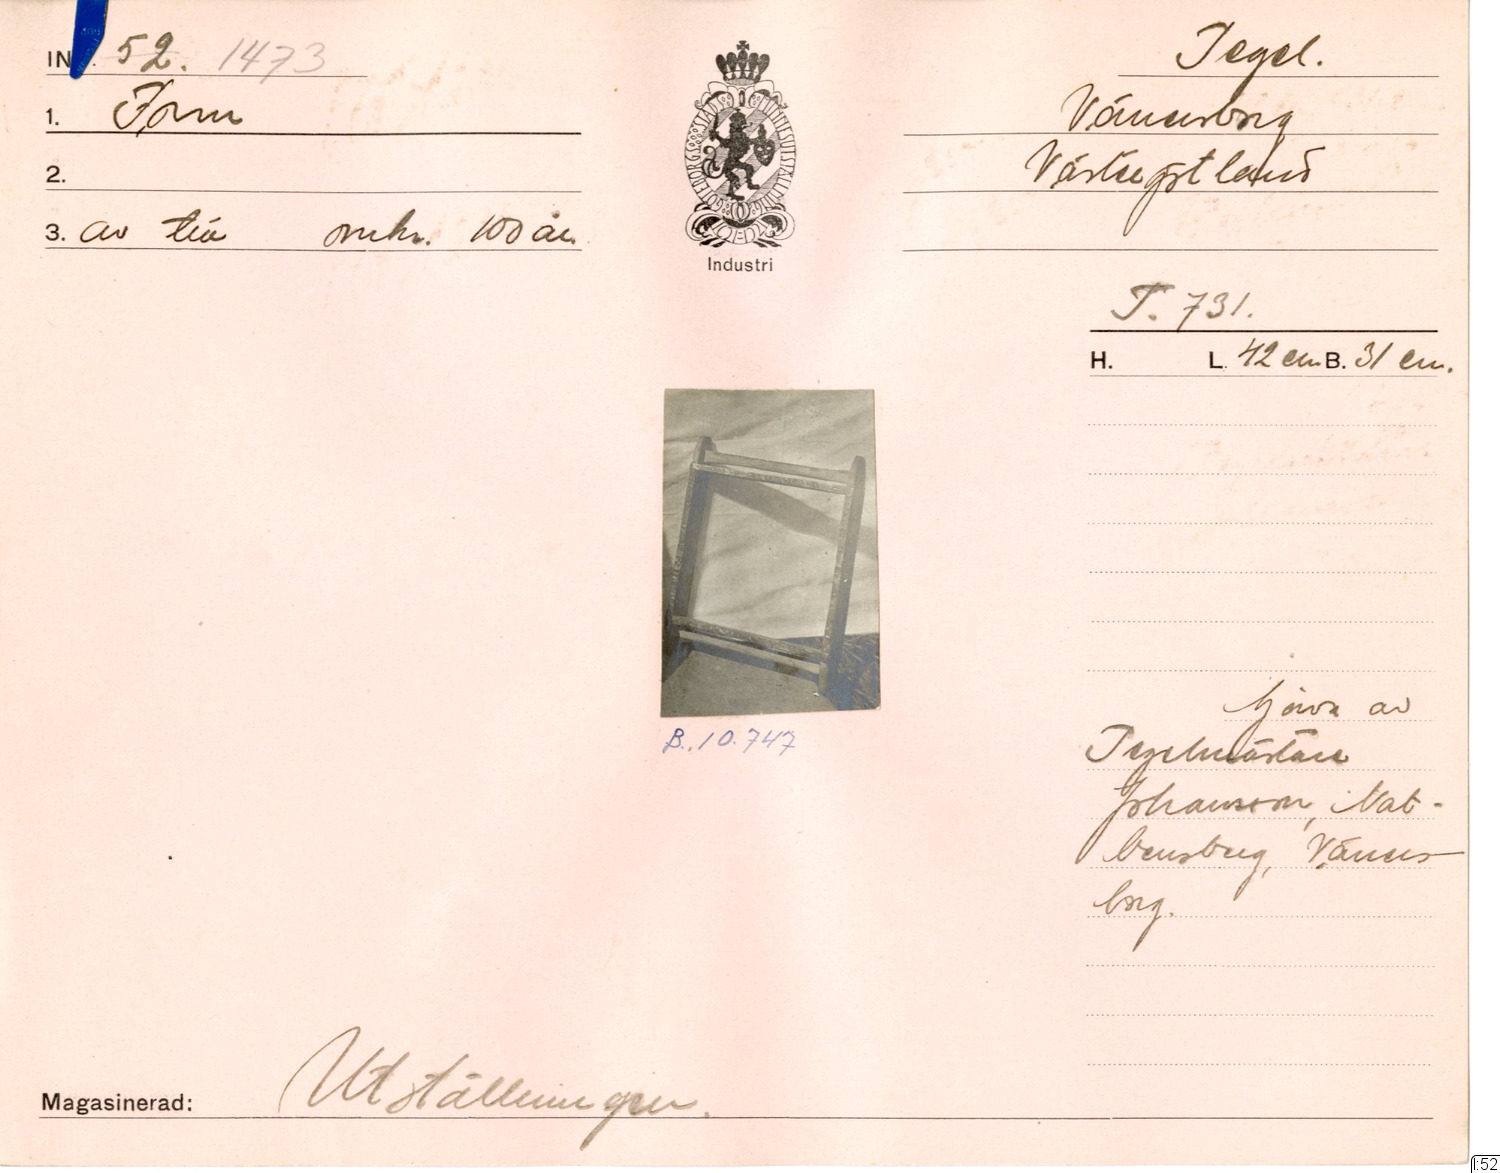 IN 52. 1473
Tegel.
1. Form
Vänersborg
2.
Västergötland
3. av trä omkr. 100 år.
Industri
T. 731.
H. L. 42 cm B. 31 cm.
B. 10.747
Gåva av
Tegelmästare
Johansson, Nab-
bensberg, Väners-
borg.
Magasinerad: Utställningen.
I:52